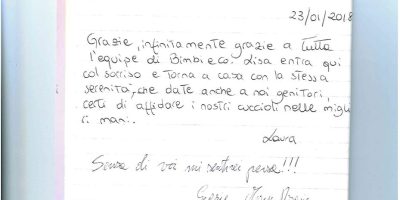 23/01/2018
Grazie, infinitamente grazie a tutta
l'equipe di Bimbi e co. Lisa entra qui
col sorriso e torna a casa con la stessa
serenità, che date anche a noi genitori,
certi di affidare i nostri cuccioli nelle miglio
ri mani.
Laura
Senza di voi mi sentirei persa!!!
Grazie